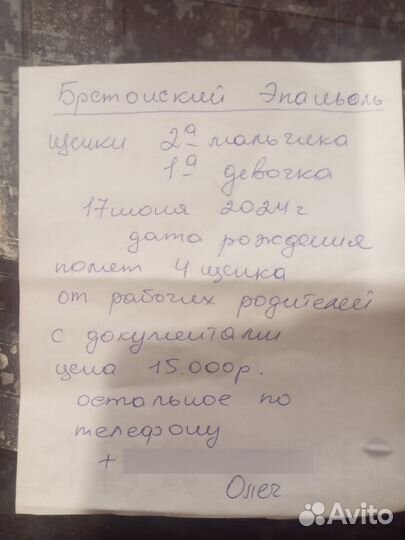 Бретонский Эпаньоль
щенки 2а мальчика
1а девочка
17 июня 2024г
дата рождения
помет 4 щенка
от рабочих родителей
с документами
цена 15.000р.
остальное по
телефону
+
Олег.
Avito